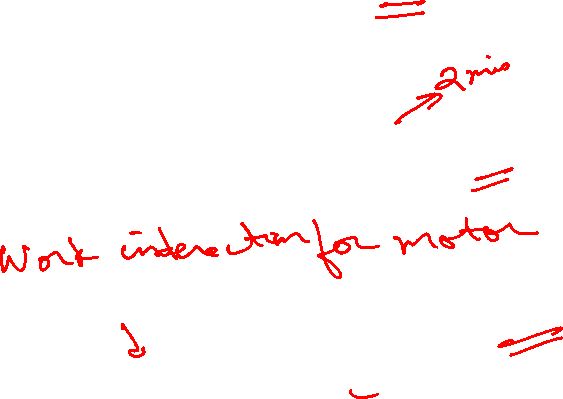 2 min
Work interaction for motor